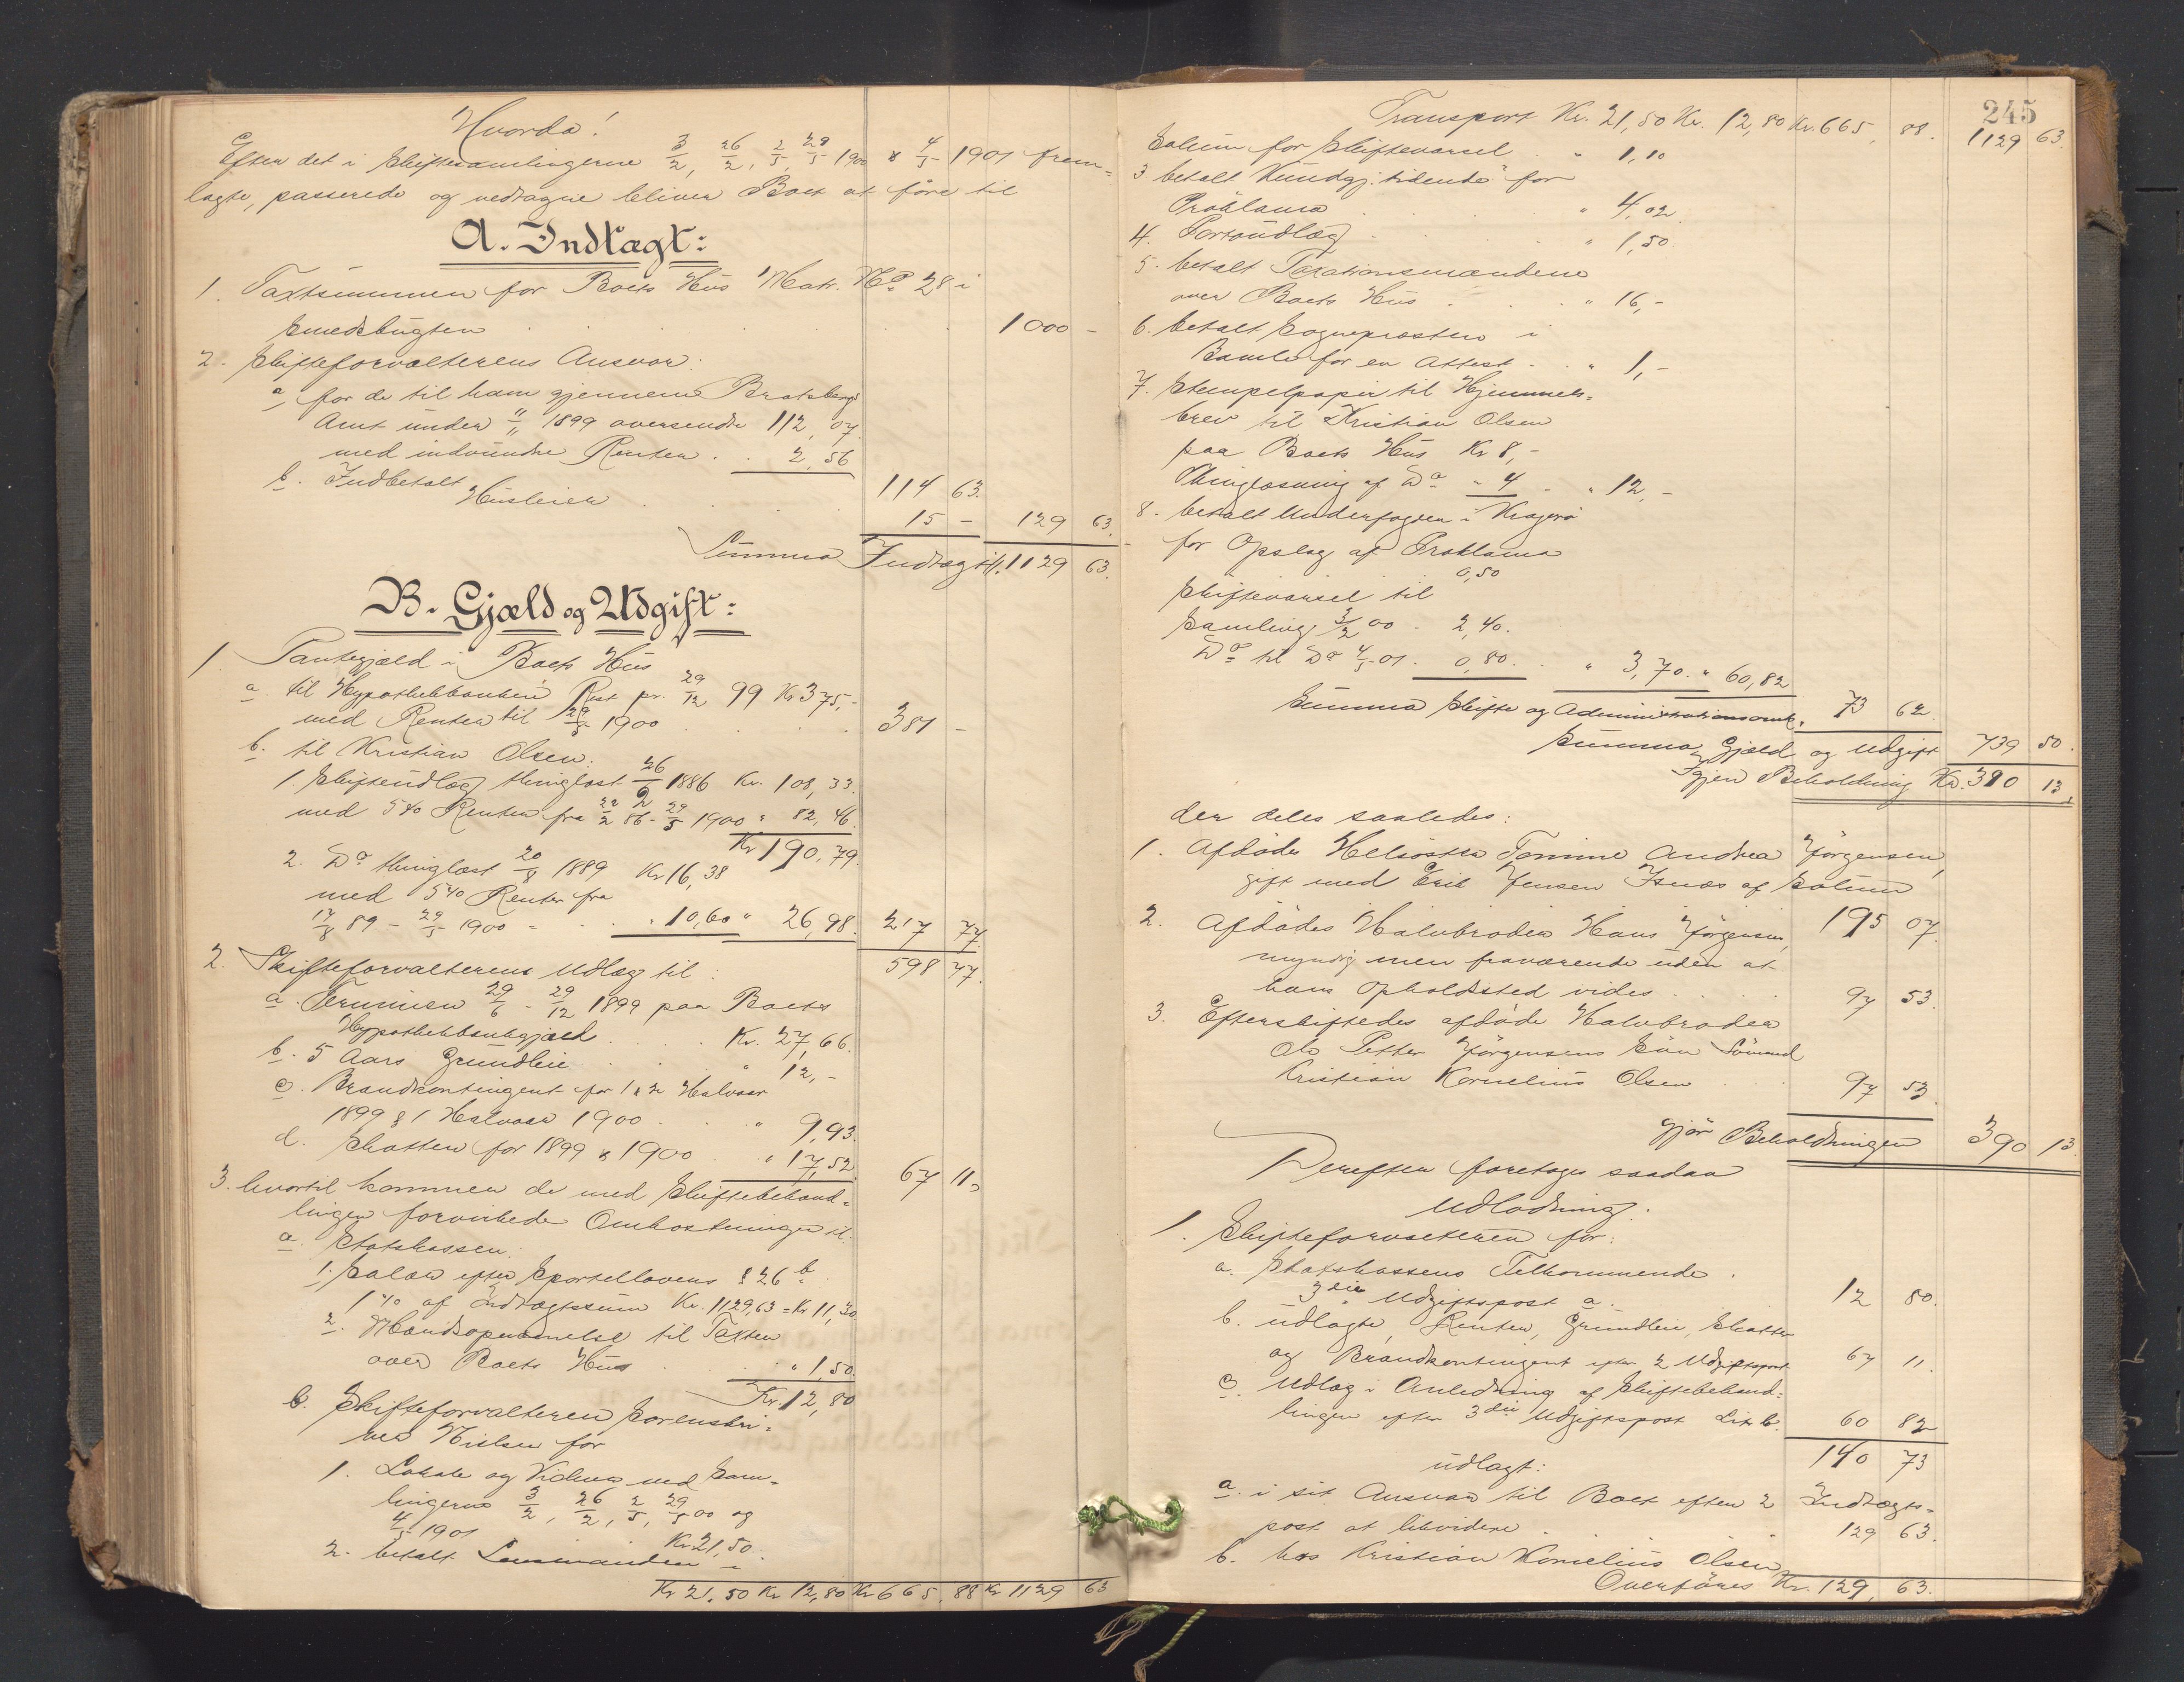 Hvorda!
Efter det i Skiftesamlingerne 3/2, 26/2, 2/5, 29/5 1900 & 4/5 1901 frem-
lagte, passerede og vedtagne bliver Boet at føre til
A. Indtægt:
1. Taxtsummen for Boets Hus Matr. No 28 i
Smedsbugten . . . . 1000 -
2. Skifteforvalterens Ansvar:
a, for de til ham gjennem Bratsberg
Amt under "/" 1899 oversendte 112,07
med indvundne Renter . . 2,56
114 63.
b. Indbetalt
Husleien . . . 15 - 129 63.
Summa Indtægt Kr. 1129 63.
B. Gjæld og Udgift:
1. Pantegjæld i Boets Hus
a. til Hypothekbanken Rest pr. 29/12 99 Kr 375,-
med Renter til 29/5 1900 . . . . 381 -
b. til Kristian Olsen:
1. Skifteudlæg thinglæst 26/2 1886 Kr. 108,33.
med 5% Renter fra 22/2 86 - 29/5 1900 " 82,46.
Kr 190,79.
2. Do thinglæst 20/8 1889 Kr 16,38
med 5% Renter fra
17/8 89 - 29/5 1900 - . . " 10,60 " 26,98. 217 77.
598 77.
2. Skifteforvalterens Udlæg til:
a. Terminen 29/6 - 29/12 1899 paa Boets
Hypothekbankgjæld . . . Kr. 27,66.
b. 5 Aars Grundleie . . . " 12,-
c. Brandkontingent for 1 & 2 Halvaar
1899 & 1 Halvaar 1900 . . " 9,93.
d. Skatten for 1899 & 1900 . " 17,52 67 11,
3. hvortil kommer de med Skiftebehand-
lingen forvirkede Omkostninger til
a. Statskassen:
1. Salær efter Sportellovens § 26 b
1% af Indtægtssum Kr. 1129,63 = Kr 11,30
2. Mandsopnævnelse til Taxten
over Boets Hus . . . " 1,50.
Kr. 12,80
b. Skifteforvalteren Sorenskri-
ver Nielsen for
1. Lokale og Vidner ved Sam-
lingerne 3/2, 26/2, 2/5, 29/5 00 og
4/5 1901 Kr 21,50.
2. betalt Lensmanden i
Kr 21,50 Kr 12,80 Kr 665,88 Kr 1129 63
245
Transport Kr. 21,50 Kr. 12,80 Kr. 665, 88. 1129 63.
Solum for Skiftevarsel . " 1,10
3 betalt "Kundgj. tidende" for
Proklama . . . . " 4,02.
4. Portoudlæg . . . . " 1,50
5. betalt Taxationsmændene
over Boets Hus . . . " 16,-
6. betalt Sognepræsten i
Bamle for en Attest . . " 1,-
7. Stempelpapir til Hjemmels-
brev til Kristian Olsen
paa Boets Hus Kr 8,-
Thinglæsning af Do " 4 . " 12,-
8. betalt Underfogden i Kragerø
for Opslag af Proklama
0,50
Skiftevarsel til
Samling 3/2 00 . 2,40.
Do til Do 4/5 01 . 0,80. . " 3,70. " 60,82
Summa Skifte og Administrationsomk. 73 62.
Summa Gjæld og Udgift 739 50.
Igjen Beholdning Kr. 390 13,
der deles saaledes:
1. Afdødes Helsøster Tomine Andrea Jørgensen,
gift med Erik Jensen Isnæs af Solum
195 07.
2. Afdødes Halvbroder Hans Jørgensen,
myndig men fraværende uden at
hans Opholdssted vides . . . . 97 53.
3. Efterskiftedes afdøde Halvbroder
Ole Petter Jørgensens Søn Sømand
Kristian Kornelius Olsen . . 97 53.
gjør Beholdningen 390 13.
Derefter foretages saadan
Udlodning:
1. Skifteforvalteren for:
a. Statskassens Tilkommende .
3die Udgiftspost a. 12 80.
b. udlagte Renter, Grundleie, Skatter
og Brandkontingent efter 2 Udgiftspost 67 11.
c. Udlæg i Anledning af Skiftebehand-
lingen efter 3die Udgiftspost Lit b. 60 82
140 73
udlagt:
a. i sit Ansvar til Boet efter 2 Indtægts-
post at likvidere . . . 129 63.
b. hos Kristian Kornelius Olsen
Overføres Kr. 129, 63.